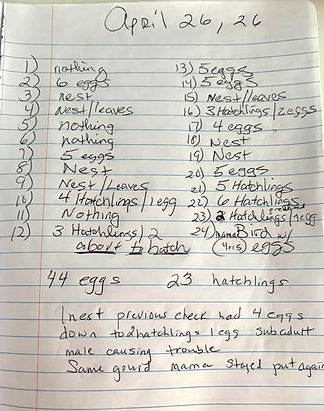 April 26, 26
1) nothing
2) 6 eggs
3) nest
4) Nest/leaves
5) nothing
6) nothing
7) 5 eggs
8) Nest
9) Nest/Leaves
10) 4 Hatchlings/1egg
11) Nothing
12) 3 Hatchlings/2
about to hatch
13) 5 eggs
14) 5 eggs
15) Nest/leaves
16) 3 Hatchlings/2eggs
17) 4 eggs
18) Nest
19) Nest
20) 5 eggs
21) 5 Hatchlings
22) 6 Hatchlings
23) 2 Hatchlings/1egg
24) mama Bird w/
eggs
44 eggs 23 hatchlings
1 nest previous check had 4 eggs
down to 2 hatchlings 1 egg subadult
male causing trouble
Same gourd mama stayed put again